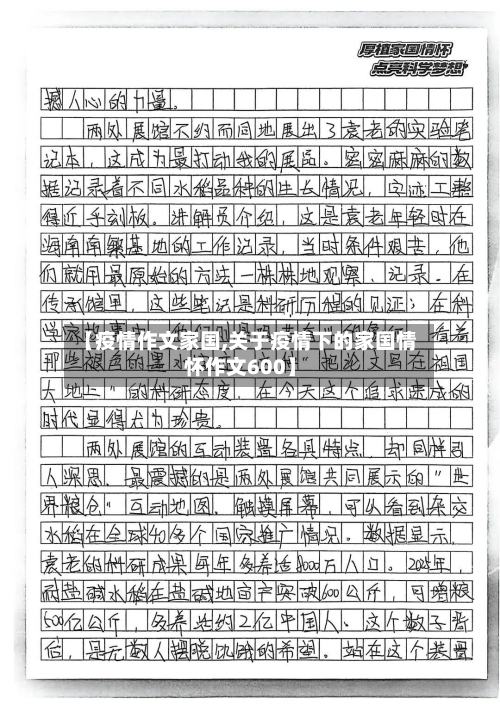 厚植家国情怀
点亮科学梦想
撼人心的力量。
两处展馆不约而同地展出了袁老的实验笔
记本，这成为最打动我的展品。密密麻麻的数
据记录着不同水稻品种的生长情况，字迹工整
得近乎刻板。讲解员介绍，这是袁老年轻时在
海南南繁基地的工作记录，当时条件艰苦，他
们就用最原始的方法一株株地观察、记录。在
传承馆里，这些笔记是科研历程的见证；在科
学家故事
看着
【疫情作文家国,关于疫情下的家国情
那些褪色的墨水
"把论文写在祖国
怀作文600】
大地上"的科研态度，在今天这个追求速成的
时代显得尤为珍贵。
两处展馆的互动装置各具特点，却同样引
人深思。最震撼的是两处展馆共同展示的"世
界粮仓"互动地图。触摸屏幕，可以看到杂交
水稻在全球40多个国家推广情况。数据显示，
袁老的科研成果每年多养活8000万人口。2024年，
耐盐碱水稻在盐碱地亩产突破600公斤，可增粮
500亿公斤，多养活约2亿中国人。这个数字背
后，是无数人摆脱饥饿的希望。站在这个装置